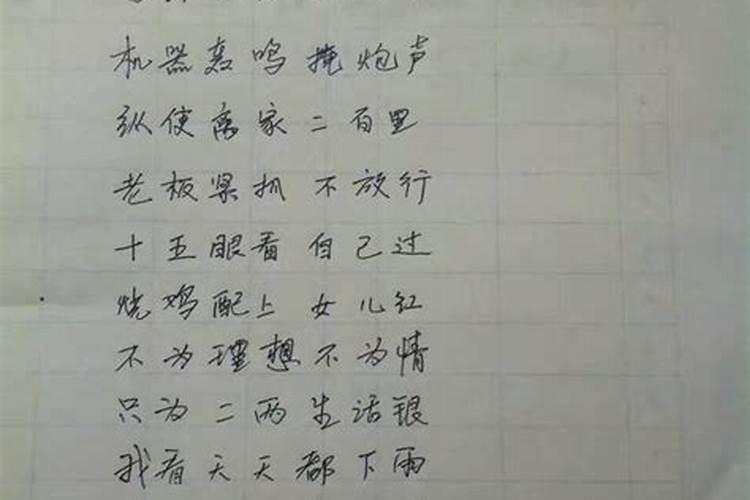 机器轰鸣掩炮声
纵使离家二百里
老板紧抓不放行
十五眼看自己过
烧鸡配上女儿红
不为理想不为情
只为二两生活银
我看天天都下雨